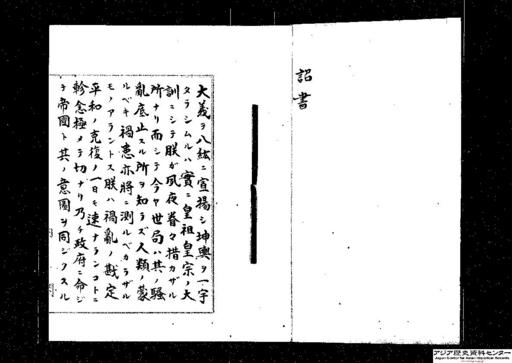 詔書
大義ヲ八紘ニ宣揚シ坤輿ヲ一宇
タラシムルハ實ニ皇祖皇宗ノ大
訓ニシテ朕ガ夙夜眷々措カザル
所ナリ而シテ今ヤ世局ハ其ノ騒
亂底止スル所ヲ知ラズ人類ノ蒙
ルベキ禍患亦將ニ測ルベカラザル
モノアラントス朕ハ禍亂ノ戡定
平和ノ克復ノ一日モ速ナランコトニ
軫念極メテ切ナリ乃チ政府ニ命ジ
テ帝國ト其ノ意圖ヲ同ジクスル
アジア歴史資料センター
Japan Center for Asian Historical Records